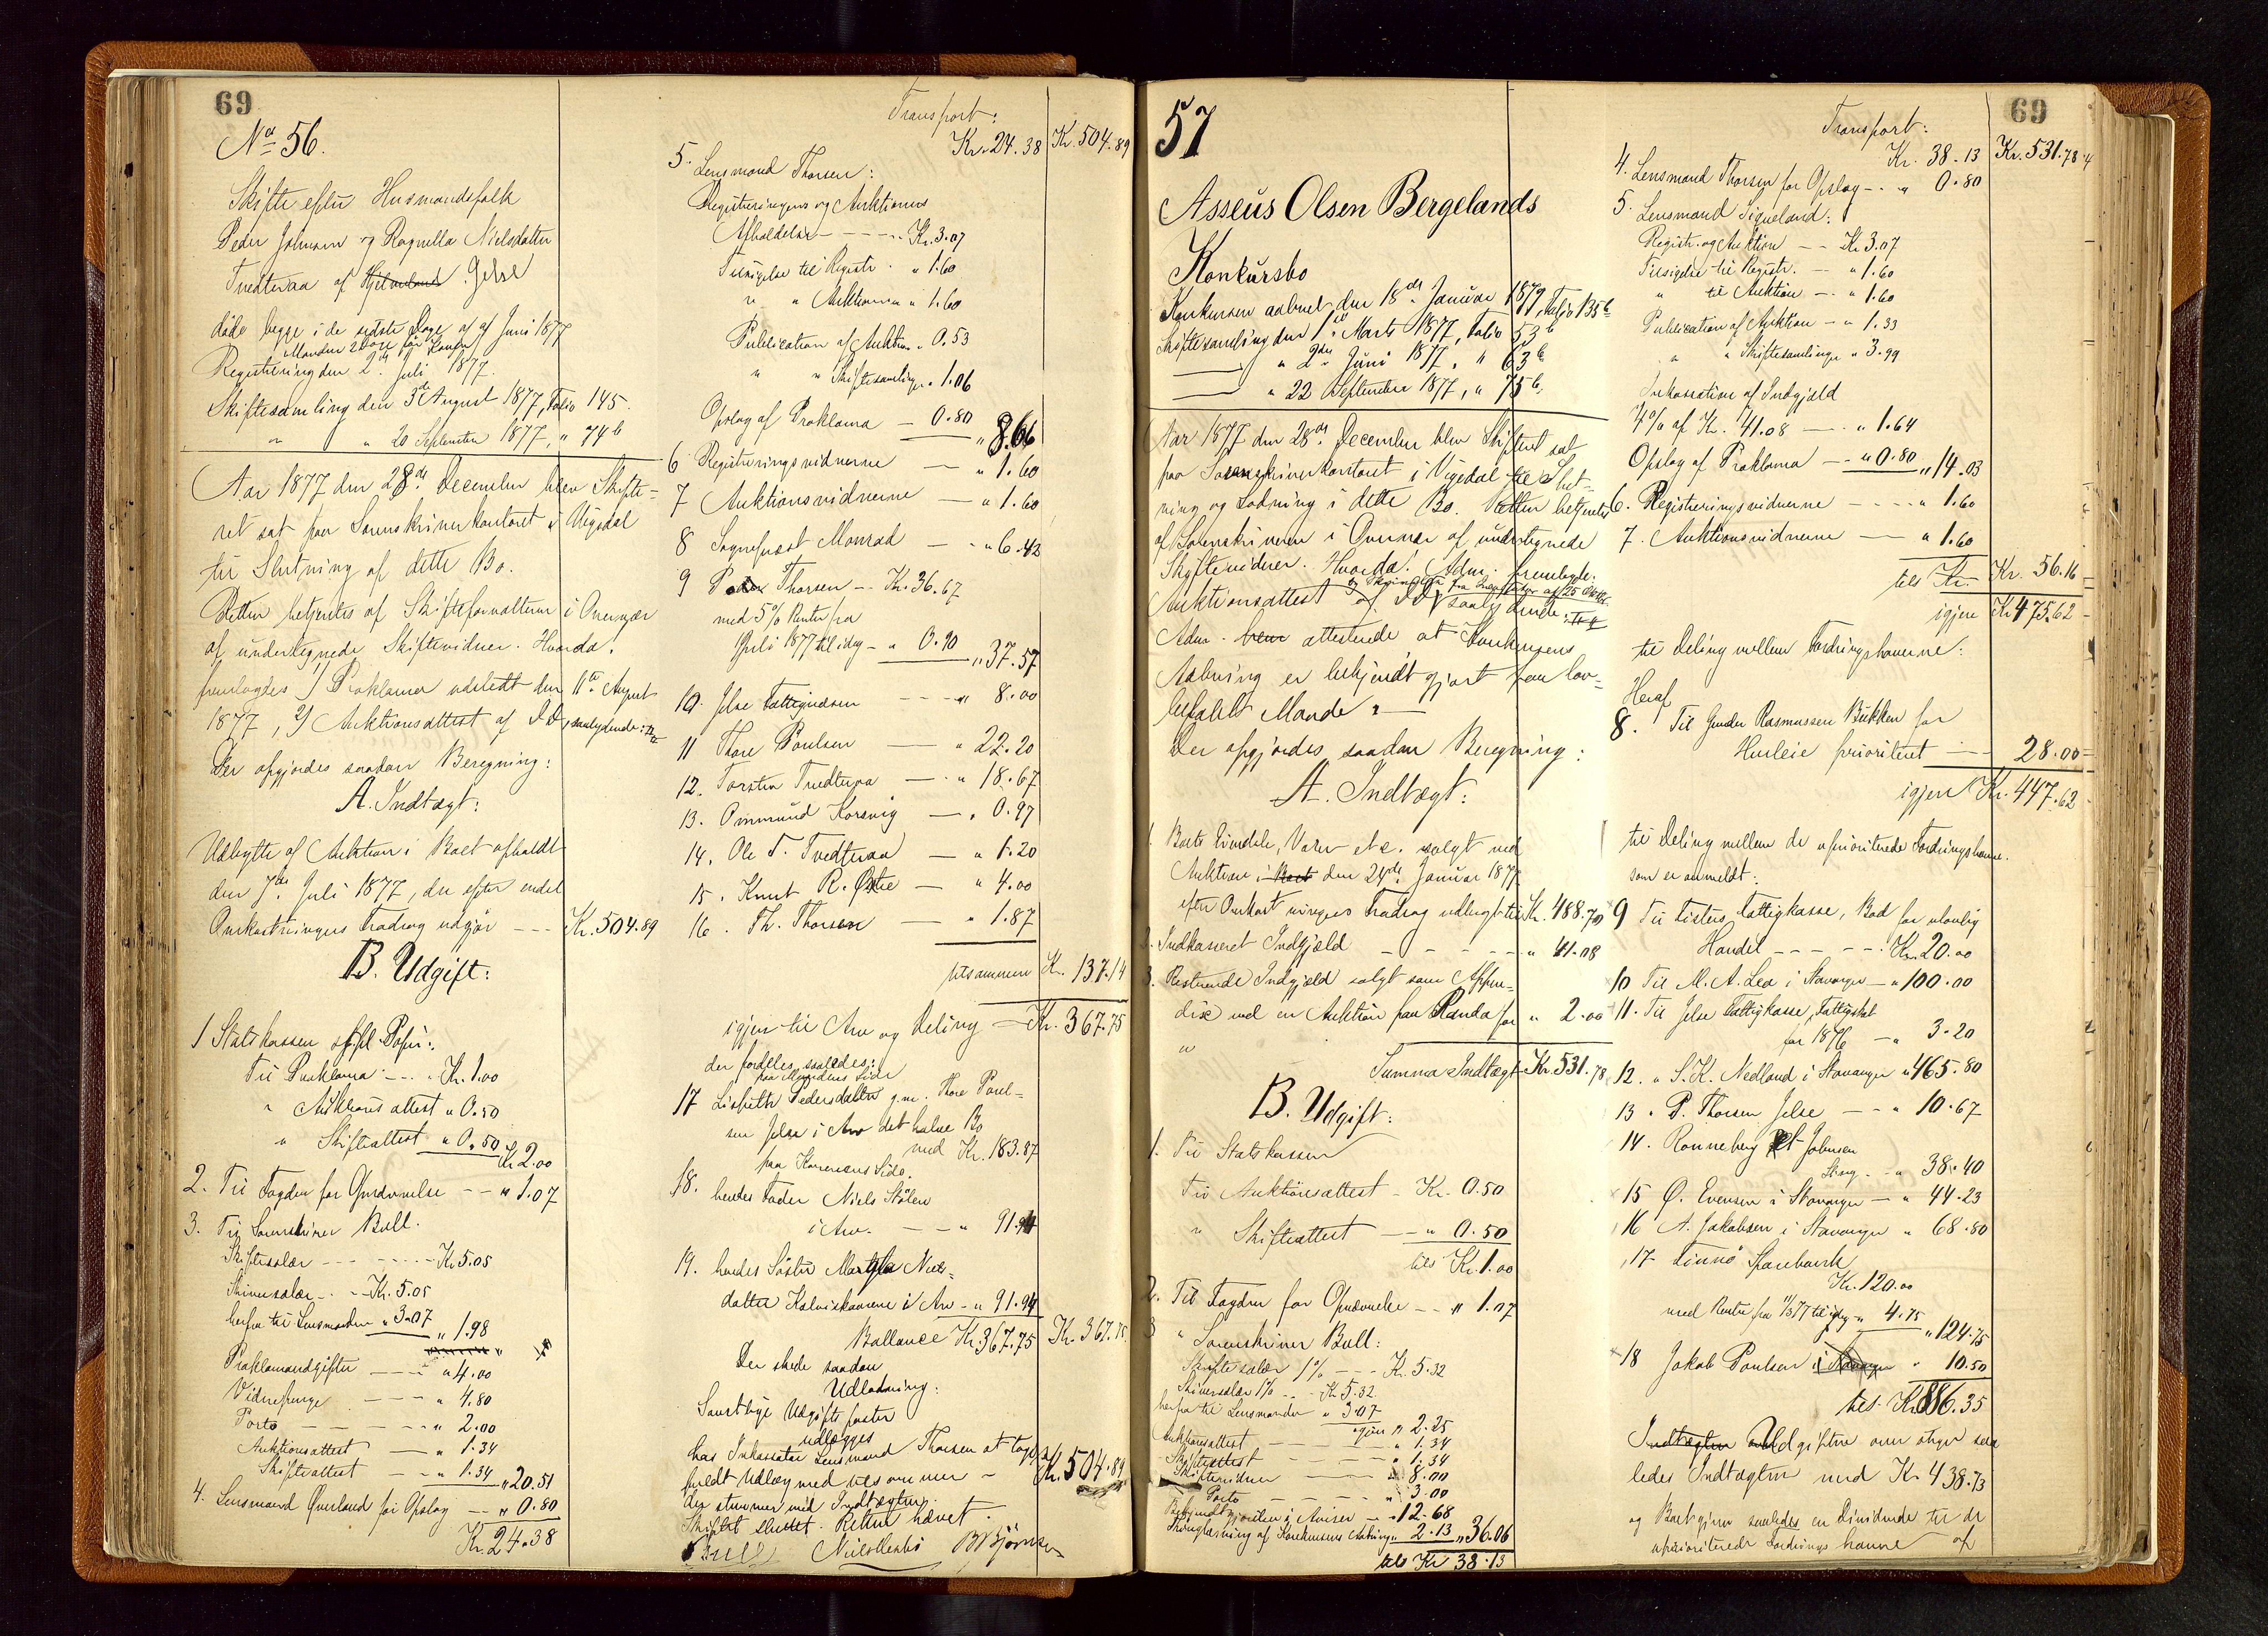 69
No 56.
Skifte efter Husmandsfolk
Peder Johnsen og Ragnilla Nielsdatter
Tvedteraa af Hjelmeland Jelse
døde begge i de sidste Dage af Juni 1877
Manden 2 Dage før Konen
Registrering den 2. Juli 1877.
Skiftesamling den 3de August 1877, Folio 145.
" " 20 September 1877, " 74b
Aar 1877 den 28de December blev Skifte-
ret sat paa Sorenskriverkontoret i Vigedal
til Slutning af dette Bo.
Retten betjentes af Skifteforvalteren i Overvær
af undertegnede Skiftevidner. Hvorda!
fremlagdes 1) Proklama udstedt den 11te August
1877, 2) Auktionsattest af D.D., saalydende:
Der opgjordes saadan Beregning:
A. Indtægt:
Udbytte af Auktion i Boet afholdt
den 7de Juli 1877, der efter endel
Omkostningers Fradrag udgjør --- Kr. 504.89
B. Udgift:
1 Statskassen f. stpl. Papir:
Til Proklama --- Kr. 1.00
" Auktionsattest " 0.50
" Skifteattest " 0.50 Kr 2.00
2. Til Fogden for Opnævnelse -- " 1.07
3. Til Sorenskriver Bull.
Skiftesalær --- Kr 5.05
Skriversalær -- Kr. 5.05
herfra til Lensmanden " 3.07 " 1.98
Proklamaudgifter --- " 4.00
Vidnepenge --- " 4.80
Porto --- " 2.00
Auktionsattest -- " 1.34
Skifteattest -- " 1.34 " 20.51
4. Lensmand Qverland for Opslag -- " 0.80
Kr. 24.38
Transport:
Kr. 24.38 Kr. 504.89
5. Lensmand Thorsen:
Registreringens og Auktionens
Afholdelse --- Kr. 3.07
Tilsigelse til Registr. " 1.60
" " Auktionen " 1.60
Publication af Auktion " 0.53
" " Skiftesamlinger " 1.06
Opslag af Proklama - 0.80 " 8.66
6 Registreringsvidnerne -- " 1.60
7 Auktionsvidnerne -- " 1.60
8 Sogneprest Monrad -- " 6.42
9 Peder Thorsen -- Kr. 36.67
med 5% Renter fra
Juli 1877 til idag - " 0.90 " 37.57
10. Jelse Fattigvæsen --- " 8.00
11 Thore Poulsen -- " 22.20
12. Torsten Tvedteraa -- " 18.67
13. Ommund Korsvig -- " 0.97
14. Ole T. Tvedteraa -- " 1.20
15. Knut R. Østre -- " 4.00
16. Th. Thorsen -- " 1.87
tilsammen K. 137.14
igjen til Arv og Deling - Kr. 367.75
der fordeles saaledes:
paa Mandens Side
17 Lisbeth Pedersdatter g.m. Thore Poul-
sen Jelsa i Arv det halve Bo
med Kr. 183.87
paa Konenens Side.
18. hendes Fader Niels Stølen
i Arv. -- " 91.94
19. hendes Søster Martha Niels-
datter Kalviskaarene i Arv - " 91.94
Ballance Kr 367.75 Kr. 367.75
Der skede saadan
Udlodning:
Samtlige Udgifts poster
udlægges
has Inkassator Lensmand Thorsen at tage
fuldt Udlæg med tilsammen - Kr. 504.89
der stemmer med Indtægten.
Skiftet sluttet. Retten hævet.
Bull Nils Olenbø B Bjørnsen
57
Asseus Olsen Bergelands
Konkursbo
Konkursen aabnet den 18de Januar 1877, Folio 135b
Skiftesamling den 1ste Marts 1877, Folio 53b
" 2den Juni 1877, " 63b
" 22 September 1877, " 75b
Aar 1877 den 28de December blev Skifteret sat
paa Sorenskriverkontoret i Vigedal til Slut-
ning og Lodning i dette Bo. Retten betjentes
af Sorenskriveren i Overvær af undertegnede
Skiftevidner. Hvorda! Adm. fremlagde:
Auktionsattest af D.D. saalydende:
Adm. bem attesterede at Konkursens
Aabning er bekjendtgjort paa lov-
befalet Maade. -
Der opgjordes saadan Beregning:
A. Indtægt:
1. Boets Eiendele, Varer etc. solgt ved
Auktion i Boet den 24de Januar 1877
efter Omkostningers Fradrag udbragt til Kr. 488.70
2. Indkasseret Indgjæld ---- " 41.08
3. Resterende Indgjæld solgt som Appen-
dix ved en Auktion paa Randa for " 2.00
Summa Indtægt Kr. 531.78
B. Udgift:
1. Til Statskassen
Til Auktionsattest - Kr. 0.50
" Skifteattest -- " 0.50
tils Kr. 1.00
2. Til Fogden for Opnævnelse -- " 1.07
3 " Sorenskriver Bull:
Skiftesalær 1% --- K. 5.32
Skriversalær 1% -- Kr. 5.32
herfra til Lensmanden " 3.07
igjen " 2.25
Auktionsattest --- " 1.34
Skifteattest --- " 1.34
Skiftevidner --- " 8.00
Porto --- " 3.00
Bekjendtgjørelse i Aviser -- " 12.68
Thinglæsning af Konkursens Aabning " 2.13 " 36.06
tils Kr 38.13
69
Transport:
Kr. 38.13 Kr. 531.78
4. Lensmand Thorsen for Opslag -- " 0.80
5. Lensmand Tiqueland:
Registr. og Auktion -- Kr 3.07
Tilsigelse til Registr. -- " 1.60
" til Auktion -- " 1.60
Publication af Auktion -- " 1.33
" " Skiftesamlinger " 3.99
Inkassation af Indgjæld
4% af Kr. 41.08 -- " 1.64
Opslag af Proklama -- " 0.80 " 14.03
6. Registreringsvidnerne ---- " 1.60
7. Auktionsvidnerne -- " 1.60
tils Kr. Kr. 56.16
igjen Kr 475.62
til Deling mellem Fordringshaverne:
Heraf
8. Til Gunder Rasmussen Bukken for
Husleie prioriteret --- 28.00
igjen Kr. 447.62
til Deling mellem de uprioriterede Fordringshavere.
som er anmeldt:
9 Til Listers Fattigkasse, Bod for ulovlig
Handel ---- Kr. 20.00
10 Til M. A. Lea i Stavanger - " 100.00
11. Til Jelse Fattigkasse, Fattigskat
for 1876 - " 3.20
12. " S. K. Nedland i Stavanger " 465.80
13 " P. Thorsen Jelse -- " 10.67
14. Ronneberg & Johnsen
Stvgr. - " 38.40
15 Ø. Evensen i Stavanger - " 44.23
16 A. Jakobsen i Stavanger " 68.80
17 Finnø Sparebank
Kr. 120.00
med Renter fra 11/3 77 til idag " 4.75 " 124.75
18 Jakob Poulsen i Stavanger " 10.50
tils. Kr. 886.35
Indtægten Udgifterne over stiger saa
ledes Indtægten med Kr 438.73
og Boet giver saaledes en Dividende til de
uprioriterede Fordringshavere af